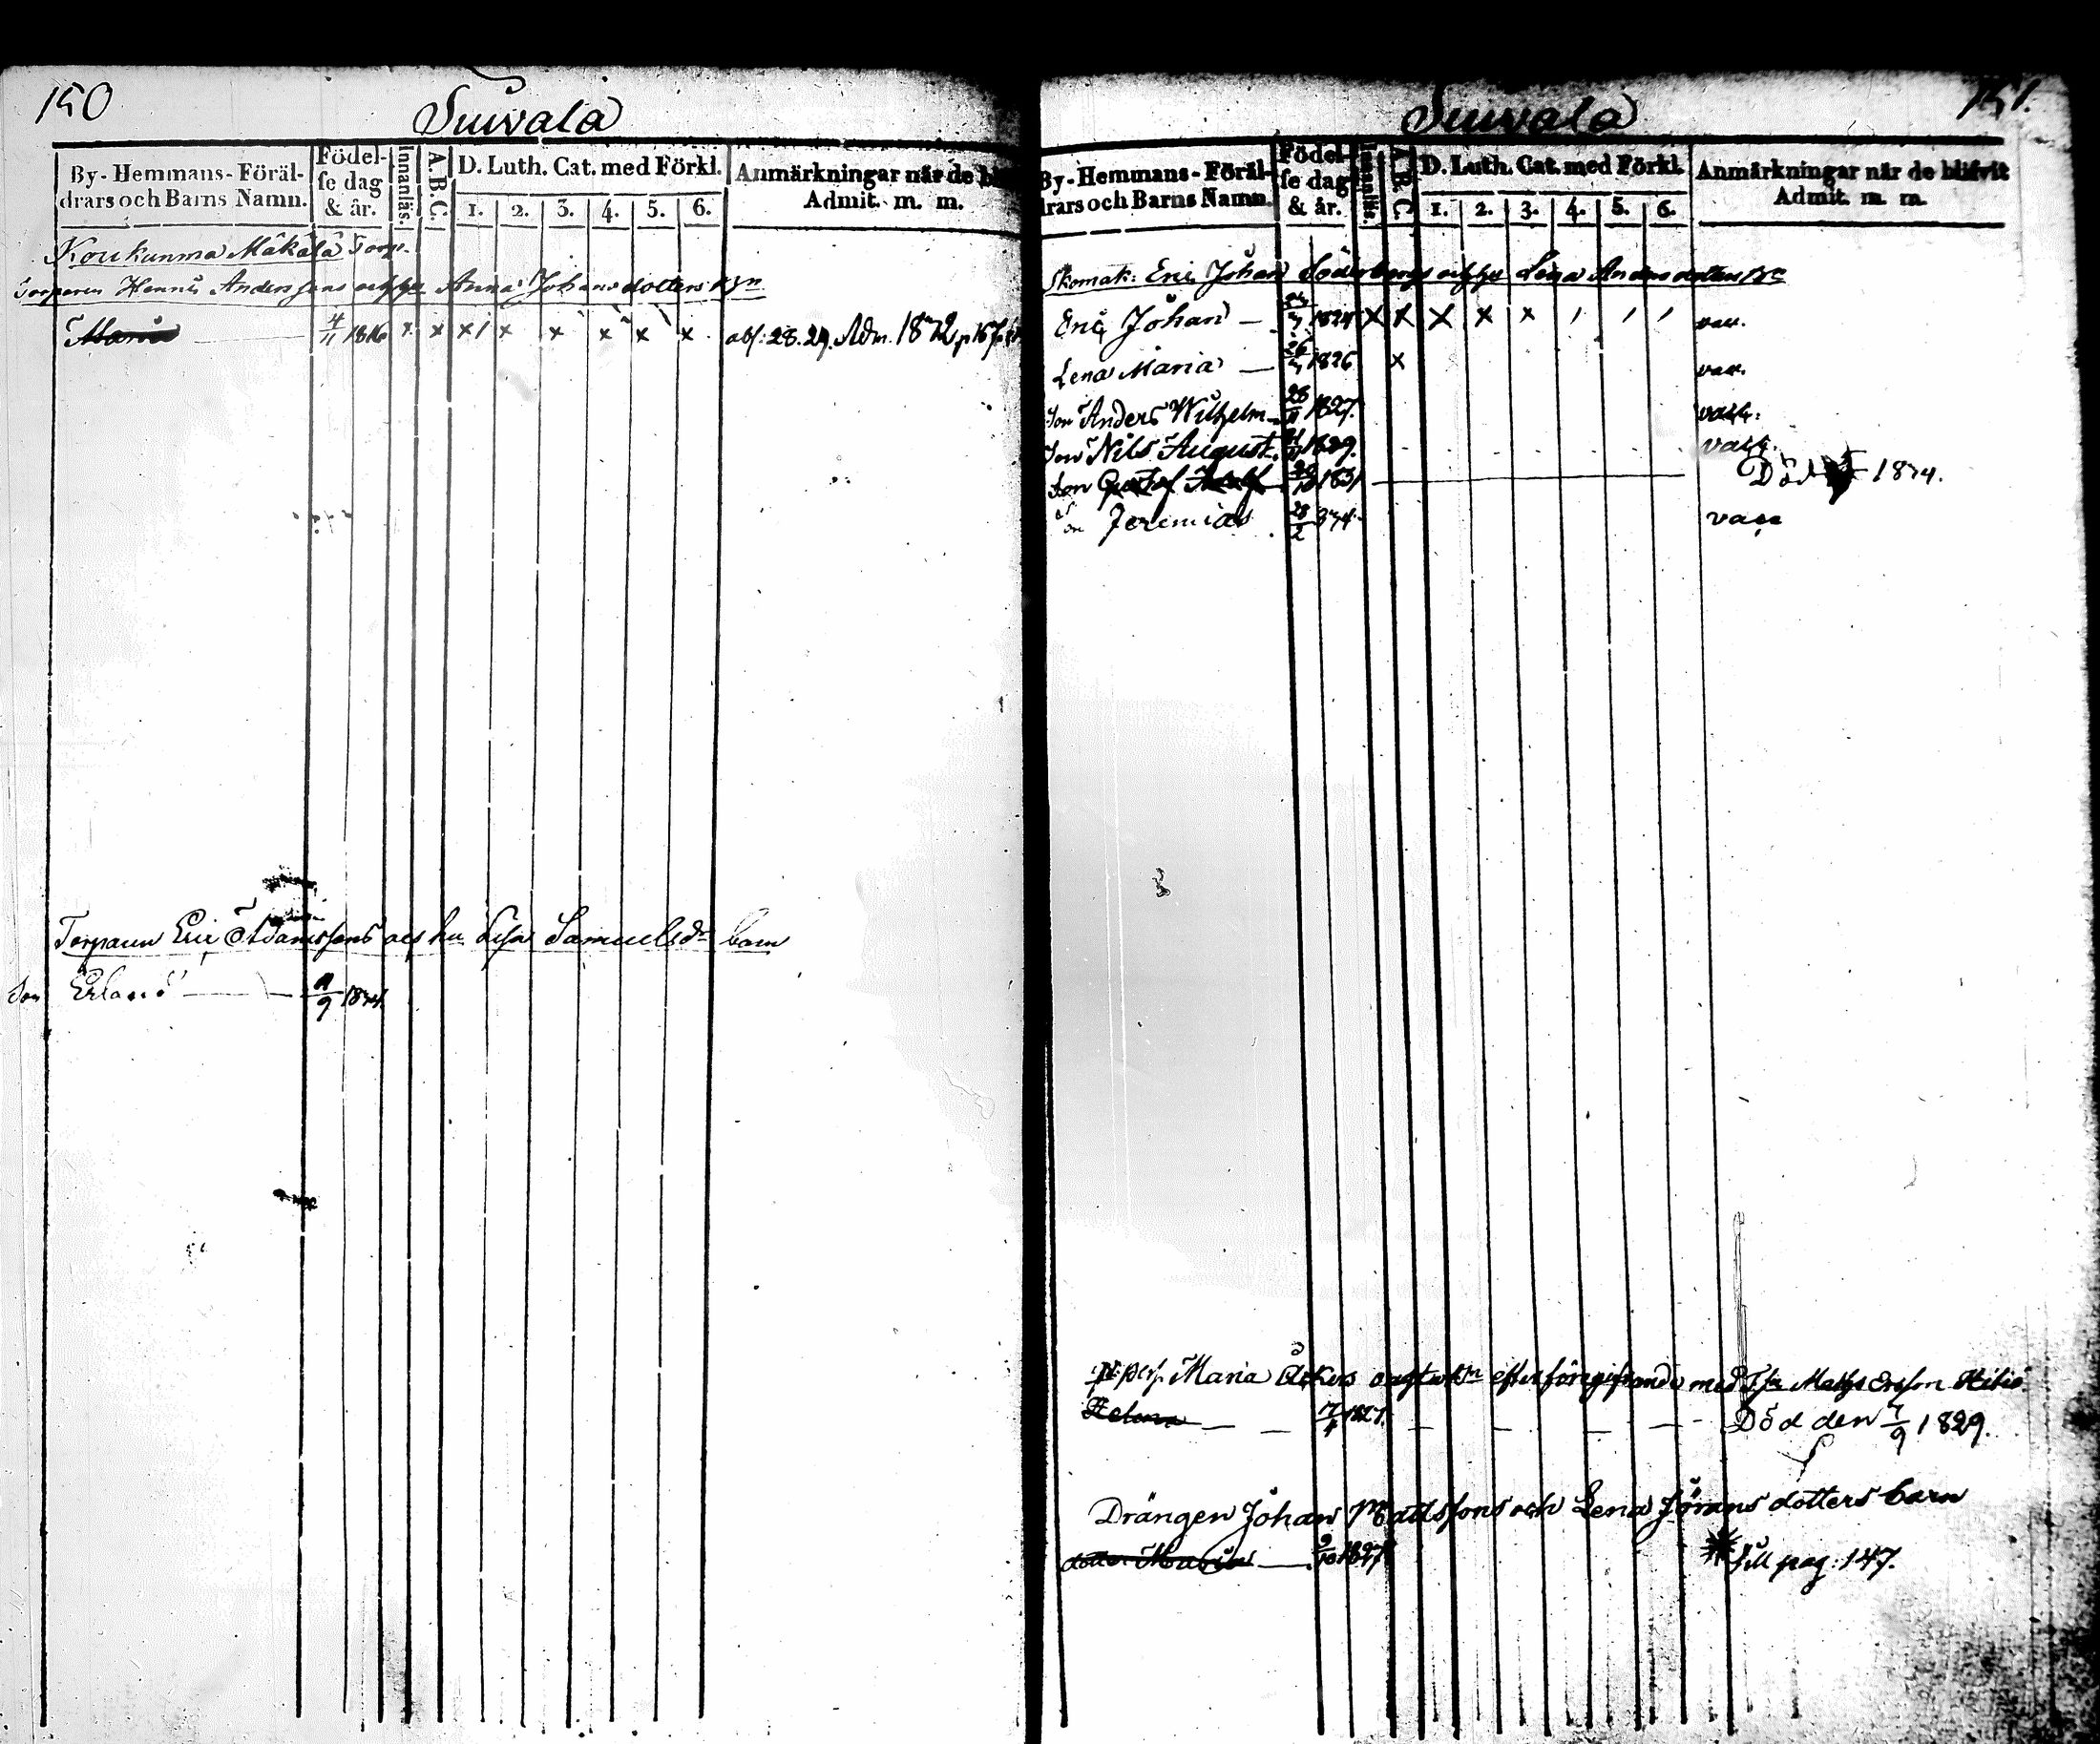 150
Suwala
By-Hemmans-Föräl-
drars och Barns Namn.
Födel-
se dag
& år.
Innanläs.
A.B.C.
D. Luth. Cat. med Förkl.
1. 2. 3. 4. 5. 6.
Anmärkningar när de
Admit. m. m.
Koukunma Mäkälä Torp.
Torparen Henric Anderssons Anna Johansdotters
Maria 4/11 1816 x x x x x x x Adm. 1832
Torparen Eric Adamssons och hu Lisa Samuelsdr barn
Son Erland 11/9 1834.
151.
Suwala
By-Hemmans-Föräl-
drars och Barns Namn.
Födel-
se dag
& år.
Innanläs.
A.B.C.
D. Luth. Cat. med Förkl.
1. 2. 3. 4. 5. 6.
Anmärkningar när de blifvit
Admit. m. m.
Skomak: Eric Johan Söderbergs Lena Andersdotters
Eric Johan — 1824 x x x x x vac.
Lena Maria — 26 1826 x vac.
Son Anders Wilhelm 28/11 1827. vacc.
Son Nils August 1829. vacc.
Son Gustaf Adolf 1831 Död 1834.
Son Jeremias 28/2 834. vacc
Maria Åkers med Matts Ersson
Helena — 1827. Död den 4/9 1829.
Drängen Johan Mattssons och Lena Jöransdotters barn
dotter Maria — 9/10 1827 till pag: 147.